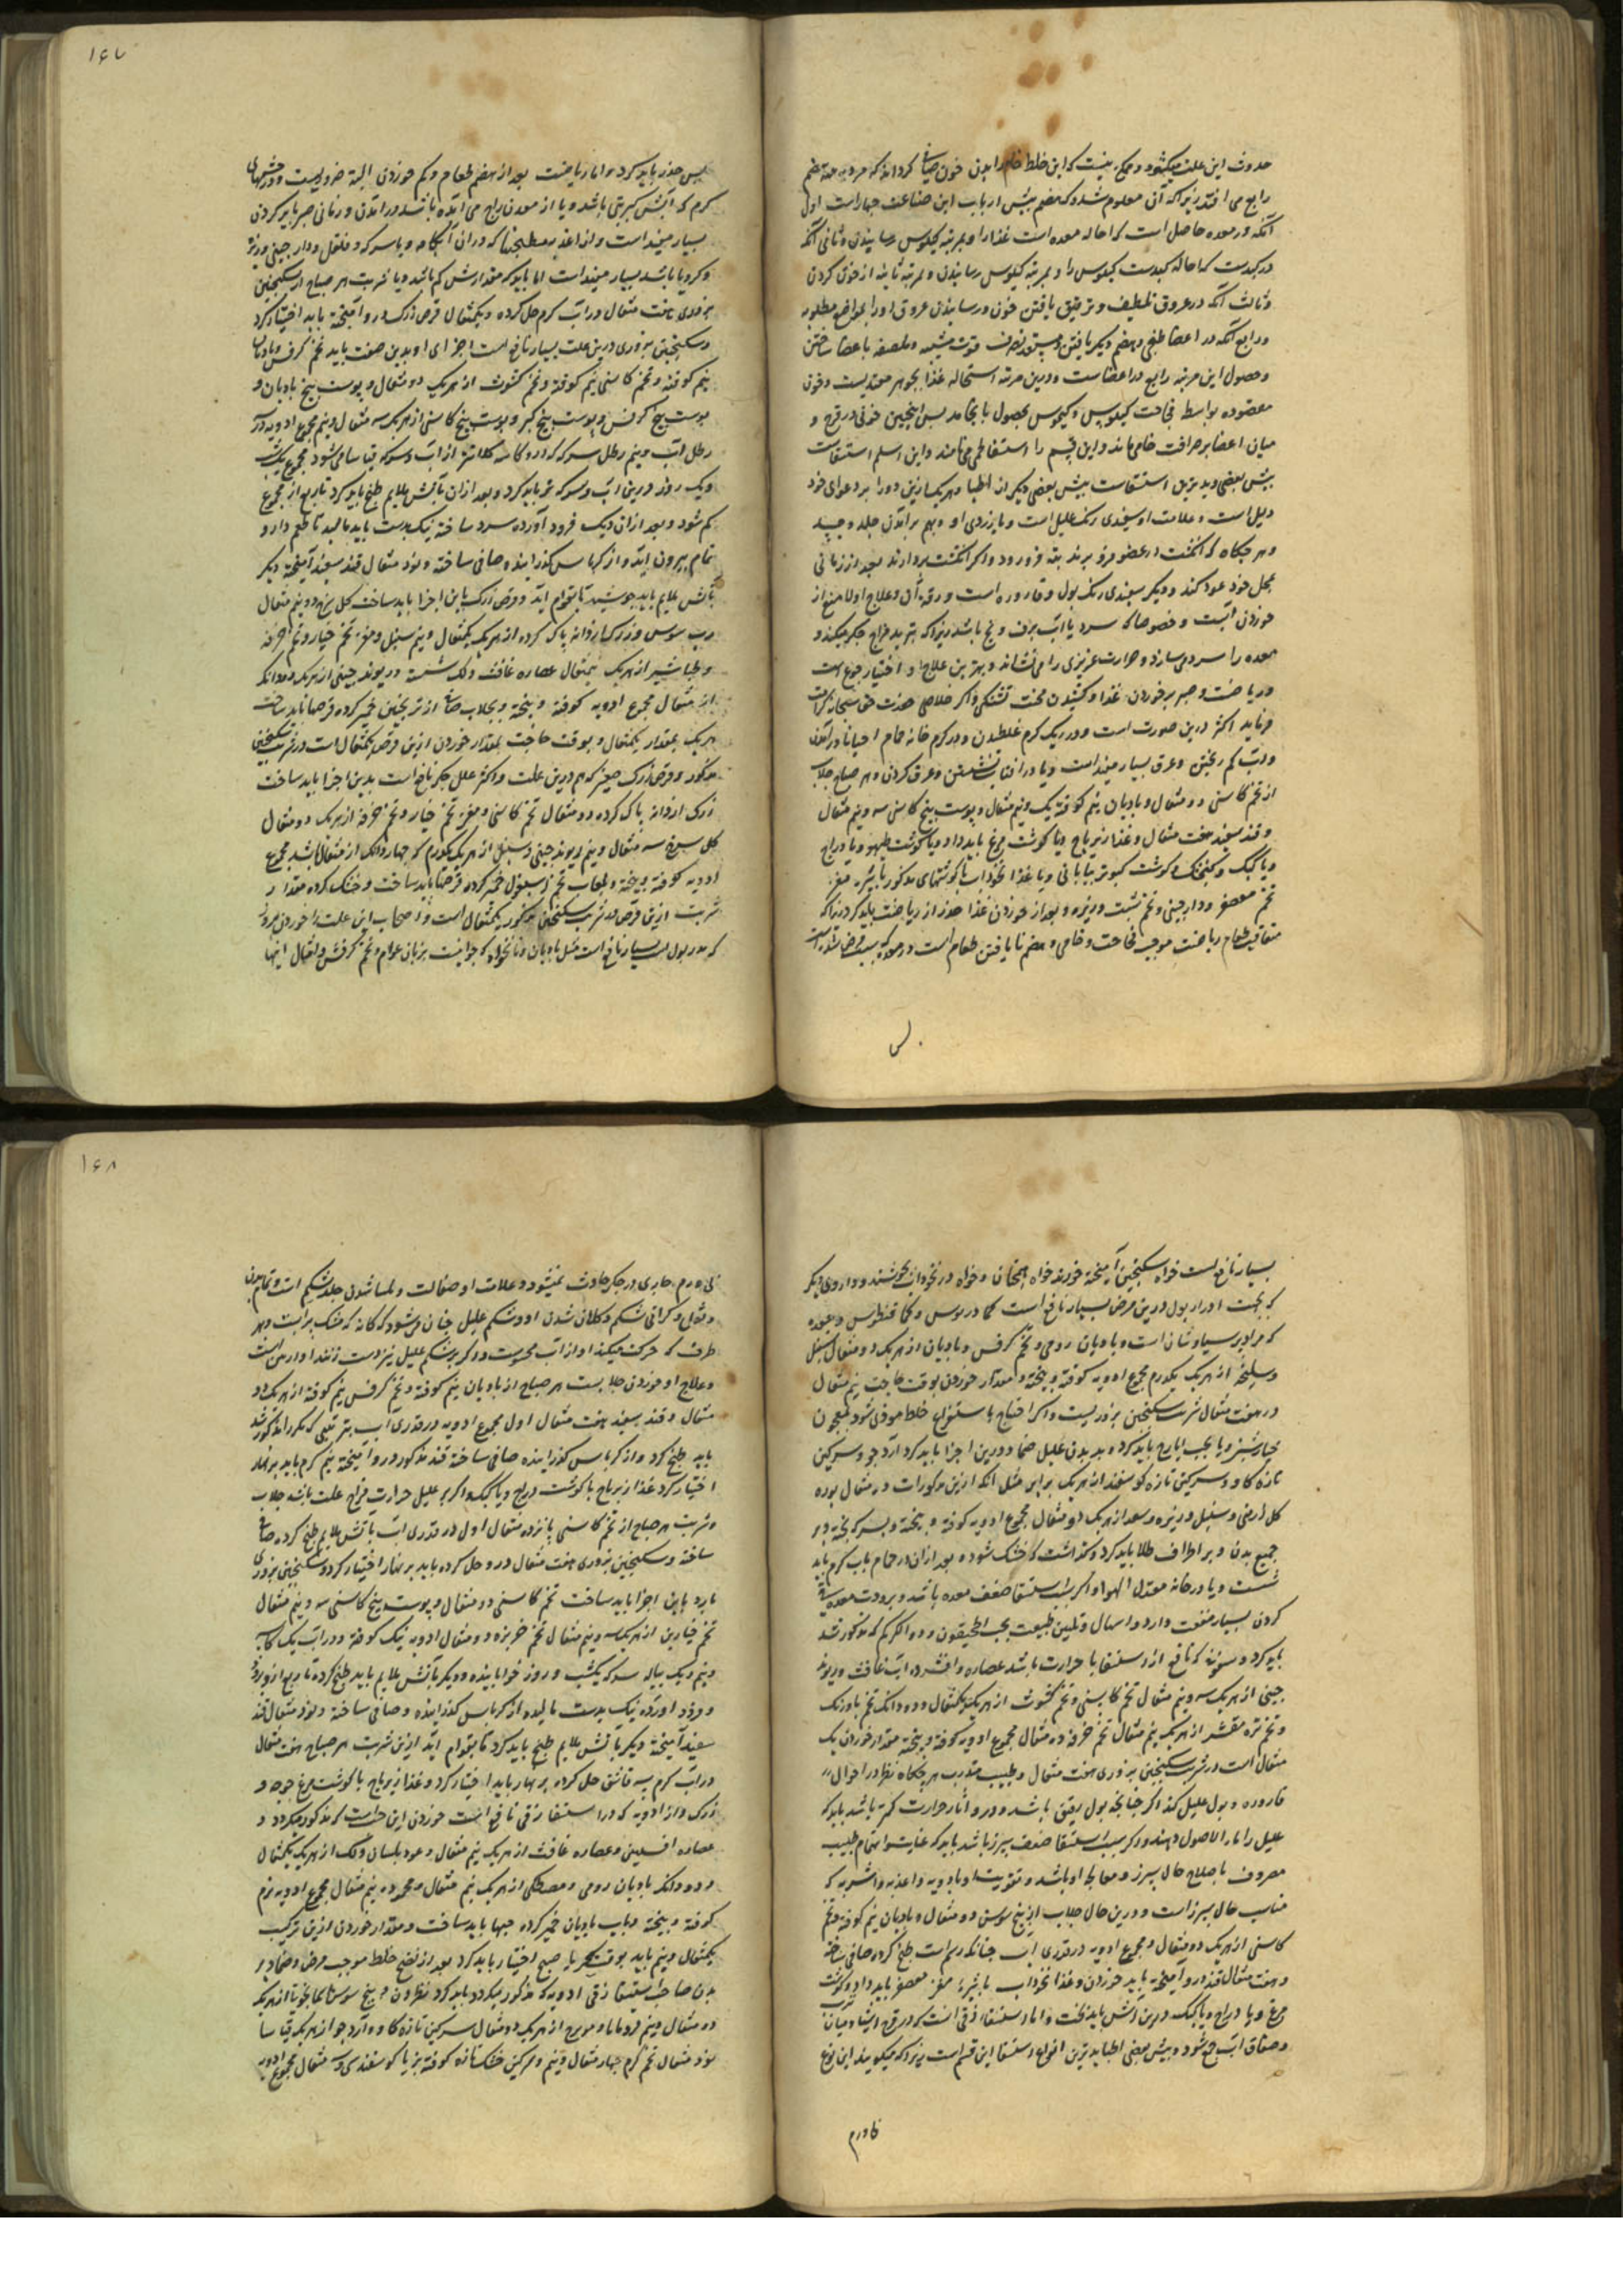 حدوث این علت میکشود و حکم نیست که این خلط خام را بدن خون صافی کرداند که در مرتبه هضم
رابع می افتد زیرا که آن معلوم شد که هضم پیش ارباب این صناعت چهار است اول
آنکه در معده حاصل است که احاله معده است غذا را و بمرتبه کیلوس رسانیدن و ثانی آنکه
در کبدست که احاله کبدست کیلوس را و بمرتبه کیموس رسانیدن و بمرتبه ثانیه از خون کردن
و ثالث آنکه در عروق تلطیف و ترقیق یافتن خون و رسانیدن عروق او را بمواضع مطلوبه
و رابع آنکه در اعضا طبخ و هضم دیگر یافتن و مستعد تصرف قوت مشبهه و ملصقه باعضا ساختن
و حصول این مرتبه رابع در اعضاست و درین مرتبه استحاله غذا بجوهر معتدیست و خون
معقوده بواسطه فجاجت کیلوس و کیموس بحصول نا انجامد پس اینچنین خونی در فرج و
میان اعضا بصرافت خامی ماند و این قسم را استسقا لحمی می نامند و این اسلم استسقاست
پیش بعضی و بدترین استسقاست پیش بعضی دیکر از اطبا و هر یک ازین دو را بر دعوای خود
دلیل است و علامت او سفیدی رنک علیل است و یا زردی او و بهم برآمدن جلد و جسد
و هر جکاه که انکشت در عضو فرو برند بته فرو رود و اکر انکشت بردارند بعد از زمانی
بمحل خود عود کند و دیکر سفیدی رنک بول و قاروره است و رقت آن و علاج اولا منع از
خوردن آبست و خصوصا که سرد یا آب برف و یخ باشد زیرا که تبرید مزاج جکر میکند و
معده را سرد می سازد و حرارت غریزی را می نشاند و بهترین علاج او اختیار جوع است
و ریاضت و صبر بر خوردن غذا و کشیدن محنت تشنکی و اکر خلاصی حضرت حق سبحانه کرامت
فرماید اکثر درین صورت است و در ریک کرم غلطیدن و در کرم خانه حمام احیانا در آمدن
و آب کم ریختن و عرق بسیار مفید است و یا در آفتاب نشستن و عرق کردن و هر صباح جلاب
از تخم کاسنی دو مثقال و بادیان نیم کوفته یک و نیم مثقال و پوست بیخ کاسنی سه و نیم مثقال
و قند سفید هفت مثقال و غذا زیرباج و یا کوشت مرغ باید داد و یا کوشت طیهو و یا دراج
و یا کبک و کنجشک و کوشت کبوتر بیابانی و یا غذا نخوداب با کوشتهای مذکور با شیره مغز
تخم معصفر و دارچینی و تخم شبت و زیره و بعد از خوردن غذا حذر از ریاضت باید کرد زیرا که
متعاقب طعام ریاضت موجب فجاجت و خامی و هضم نا یافتن طعام است در معده
پس

۱۶۷
پس حذر باید کرد و اما ریاضت بعد از هضم طعام و کم خوردن البته ضروریست و در چشمهای
کرم که آبش کبریتی باشد و یا از معدن زاج می آمده باشد در آمدن و زمانی صبر باید کردن
بسیار مفید است و از اغذیه مطبخها که در آن آبکامه و یا سرکه و فلفل و دارچینی و زیره
و کرویا باشد بسیار مفید است اما باید که مقدارش کم باشد و یا شربت هر صباح از سکنجبین
بزوری هفت مثقال در آب کرم حل کرده و یکمثقال قرص زرک درو آمیخته باید اختیار کرد
و سکنجبین بزوری درین علت بسیار نافع است اجزای او بدین صفت باید تخم کرفس و بادیان
نیم کوفته و تخم کاسنی نیم کوفته و تخم کشوث از هر یک دو مثقال و پوست بیخ بادیان و
پوست بیخ کرفس و پوست بیخ کبر و پوست بیخ کاسنی از هر یک سه مثقال و نیم مجموع ادویه در
رطل آب و نیم رطل سرکه که دو کاسه کلانتر از آب و سرکه قیاسا می شود مجموع یک شب
و یک روز درین آب و سرکه تر باید کرد و بعد از آن بآتش ملایم طبخ باید کرد تا ربع از مجموع
کم شود و بعد از آن دیک فرود آورده سرد ساخته نیک بدست باید مالید تا طعم دارو
تمام بیرون آید و از کرباس کذرانیده و صافی ساخته و نود مثقال قند سفید آمیخته دیکر
بآتش ملایم باید جوشید تا بقوام آید و قرص زرک باین اجزا باید ساخت کل سرخ دو نیم مثقال
رب سوس و زرک از دانه پاک کرده از هر یک یکمثقال و نیم سنبل و مغز تخم خیار و تخم خرفه
و طباشیر از هر یک نیمثقال عصاره غافث و لک شسته و ریوند چینی از هر یک دو دانک
از مثقال مجموع ادویه کوفته و بیخته و بجلاب صافی از ترنجبین خمیر کرده قرصها باید ساخت
هر یک بمقدار یکمثقال و بوقت حاجت بمقدار خوردن ازین قرص یکمثقال است در شربت سکنجبین
مذکور و قرص زرک صغیر که هم درین علت و اکثر علل جکر نافع است بدین اجزا باید ساخت
زرک از دانه پاک کرده دو مثقال تخم کاسنی و مغز تخم خیار و تخم خرفه از هر یک دو مثقال
کل سرخ سه مثقال و نیم ریوند چینی و سنبل از هر یک یکدرم که چهار دانک از مثقال باشد مجموع
ادویه کوفته و بیخته و بلعاب تخم اسبغول خمیر کرده قرصها باید ساخت و خشک کرده مقدار
شربت ازین قرص در شربت سکنجبین مذکور یکمثقال است و اصحاب این علت را خوردن
که مدر بول است بسیار نافع است مثل بادیان و نانخواه که جوانیست بزبان عوام و تخم کرفس و امثال اینها

بسیار نافع است خواه سکنجبین آمیخته خورند خواه همچنان و خواه در نخوداب جوشند و داروی دیکر
که بجهت ادرار بول درین مرض بسیار نافع است کمادریوس و کمافیطوس و جعده
که مراد پرسیاوشان است و بادیان رومی و تخم کرفس و بادیان از هر یک دو مثقال سنبل
و سلیخه از هر یک یکدرم مجموع ادویه کوفته و بیخته و مقدار خوردن بوقت حاجت نیم مثقال
در هفت مثقال شربت سکنجبین بزوریست و اکر احتیاج باستفراغ خلط موذی شود بمعجون
خیارشنبر و یا بحب ایارج باید کرد و بر بدن علیل ضماد درین اجزا باید کرد آرد جو و سرکین
تازه کاو و سرکین تازه کوسفند از هر یک برابر مثل آنکه ازین مذکورات ده مثقال بوده
کل ارمنی و سنبل و زیره و سعد از هر یک دو مثقال مجموع ادویه کوفته و بیخته و بسرکه پخته و بر
جمیع بدن و بر اطراف طلا باید کرد و کذاشت که خشک شود و بعد از آن در حمام بآب کرم باید
شست و یا در خانه معتدل الهوا و اکر سبب استسقا ضعف معده باشد و برودت معده
کردن بسیار منفعت دارد و اسهال و تلیین طبیعت بحب اصطمخیقون و دواء الکرکم که مذکور شد
باید کرد و سفوفه که نافع از استسقا با حرارت باشد عصاره و افشرده آب غافث و ریوند
چینی از هر یک سه و نیم مثقال تخم کاسنی و تخم کشوث از هر یک یکمثقال و دو دانک تخم بادرنک
و تخم تره مقشر از هر یک نیم مثقال تخم خرفه ده مثقال مجموع ادویه کوفته و بیخته مقدار خوردن یک
مثقال است در شربت سکنجبین بزوری هفت مثقال و طبیب مقدرب هر جکاه نظر در احوال
قاروره و بول علیل کند اکر چنانچه بول رقیق باشد و درو آثار حرارت کمتر باشد باید که
علیل را ماء الاصول دهند و اکر سبب استسقا ضعف سپرز باشد باید که غایت اهتمام طبیب
مصروف باصلاح حال سپرز و معالجه او باشد و تقویت او بادویه و اغذیه و اشربه که
مناسب حال سپرز است و درین حال جلاب از بیخ سوسن دو مثقال و بادیان نیم کوفته و تخم
کاسنی از هر یک دو مثقال و مجموع ادویه در قدری آب چنانکه رسم است طبخ کرده صافی ساخته
و هفت مثقال قند درو آمیخته باید خوردن و غذا نخوداب با شیره مغز معصفر باید داد و کوشت
مرغ و یا دراج و یا کبک درین آش باید پخت و اما استسقاء زقی آنست که در فرج احشا و میان
و صفاق آب جمع شود و پیش بعضی اطبا بدترین انواع استسقا این قسم است زیرا که میکویند این نوع
تا ورم

۱۶۸
تا ورم حاری در جکر حادث نمیشود و علامات او صقالت و ملسا شدن جلد شکم است و تمام بدن
و ثقل و کرانی شکم و کلان شدن او و شکم علیل چنان میشود که کانه که مشک پر آبست و هر
طرف که حرکت میکند آواز آب محسوس و اکر بر شکم علیل نیز دست زنند آواز
و علاج او خوردن جلابست هر صباح از بادیان نیم کوفته و تخم کرفس نیم کوفته از هر یک دو
مثقال و قند سفید هفت مثقال اول مجموع ادویه در قدری آب بترتیبی که مکررا مذکور شد
باید طبخ کرد و از کرباس کذرانیده صافی ساخته قند مذکور درو آمیخته نیم کرم باید بر نهار
اختیار کرد غذا زیرباج با کوشت دراج و یا کبک و اکر بر علیل حرارت مزاج علت باشد جلاب
و شربت هر صباح از تخم کاسنی پانزده مثقال اول در قدری آب بآتش ملایم طبخ کرده صافی
ساخته و سکنجبین بزوری هفت مثقال درو حل کرده باید بر نهار اختیار کرد و سکنجبین بزوری
بارد باین اجزا باید ساخت تخم کاسنی دو مثقال و پوست بیخ کاسنی سه و نیم مثقال
تخم خیارین از هر یک سه و نیم مثقال تخم خربزه دو مثقال ادویه نیک کوفته و در آب یک کاسه
و نیم و یک پیاله سرکه یکشب و روز خوابانیده و دیکر بآتش ملایم باید طبخ کرده تا ربع ازو برود
و فرود آورده نیک بدست مالیده از کرباس کذرانیده و صافی ساخته و نود مثقال قند
سفید آمیخته دیکر بآتش ملایم طبخ باید کرد تا بقوام آید ازین شربت هر صباح هفت مثقال
در آب کرم سه قاشق حل کرده بر نهار باید اختیار کرد و غذا زیرباج با کوشت مرغ جوجه و
زرک و از ادویه که در استسقا زقی نافع است خوردن این حبست که مذکور میکردد
عصاره افسنتین و عصاره غافث از هر یک نیم مثقال و عود بلسان و لک از هر یک یکمثقال
و دو دانک بادیان رومی و مصطکی از هر یک نیم مثقال و محموده نیم مثقال مجموع ادویه نرم
کوفته و بیخته و بآب بادیان خمیر کرده حبها باید ساخت و مقدار خوردن ازین ترکیب
یکمثقال و نیم باید بوقت سحر یا صبح اختیار باید کرد بعد از نضج خلط موجب مرض و ضماد بر
بدن صاحب استسقا زقی ادویه که مذکور میکردد باید کرد نطرون و بیخ سوسن آسمانجونی از هر یک
دو مثقال و نیم قردمانا و مویزج از هر یک دو مثقال سرکین تازه کاو و آرد جو از هر یک قیاسا
نود مثقال تخم کرم چهار مثقال و نیم و سرکین خشک تازه کوفته بز یا کوسفند سی و سه مثقال مجموع ادویه